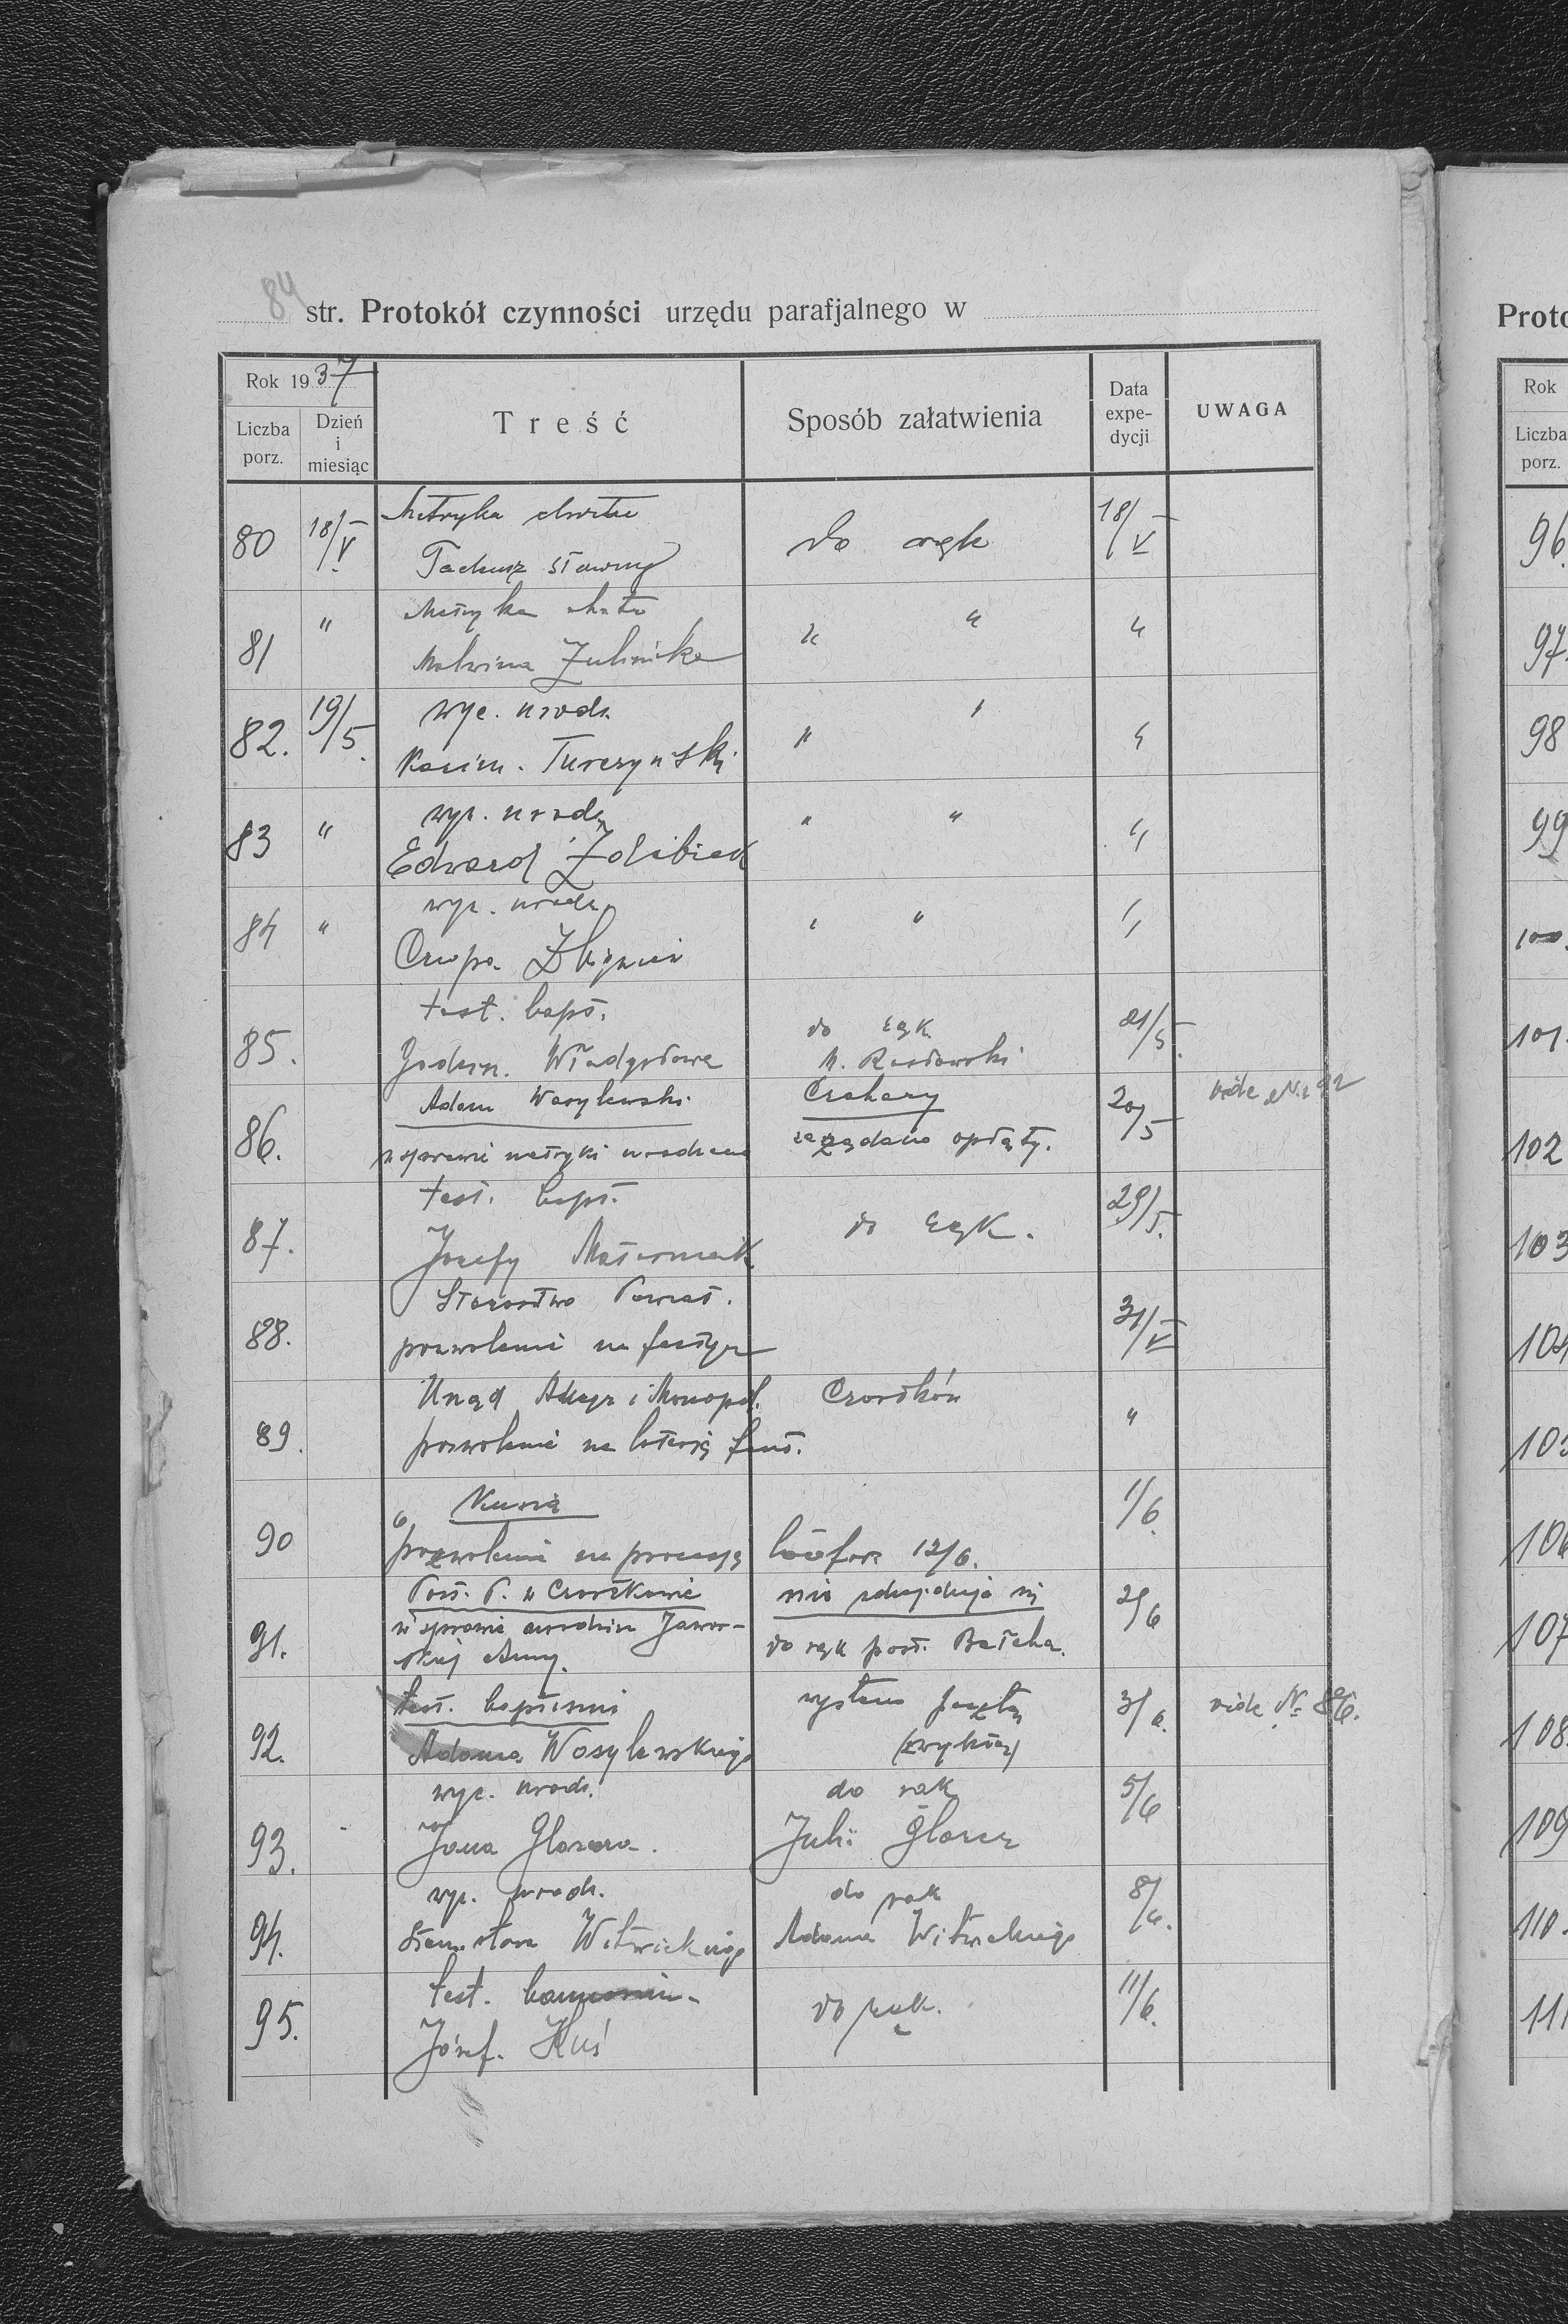 84 str. Protokół czynności urzędu parafjalnego w
Rok 1937
Liczba porz.
Dzień i miesiąc
Treść
Sposób załatwienia
Data expe-dycji
UWAGA
80 18/V Metryka chrztu do rąk 18/V
Tadeusz Sławny
81 " Metryka " " "
Malwina Zulinika
82. 19/5. wyc. urodz. " " "
Kazim. Turczyński
83 " wyc. urodz. " " "
Edward
84 " wyc. urodz. " " "
Czupa Zbigniew
85. test. bapt. do rąk 21/5.
Władysława
86. Adam Wasylewski Czahary 20/5 vide Nr 92
w sprawie metryki urodzenia zażądano opłaty.
87. test. bapt. do rąk. 29/5.
Józefy
88. Starostwo Powiat. 31/V
pozwolenie na festyn
89. Urząd Akcyz i Monopol. Czortków "
pozwolenie na loterję fant.
90 Kurja 1/6.
pozwolenie na procesję 12/6.
91. Pow. P. w Czortkowie nie znajduje się 2/6
w sprawie urodzin Jawor-
skiej Anny. do rąk post.
92. test. baptismi wysłano pocztą 3/6. vide Nr 86.
Adama Wasylewskiego (zwykłą)
93. wyc. urodz. do rąk 5/6
Jana Glazera. Julii Glazer
94. wyc. urodz. do rąk 8/6.
Stanisława Witwickiego Adama Witwickiego
95. test. do rąk. 11/6.
Józef. Kuś
Proto
Rok
Liczba
porz.
96.
97.
98
99
100.
101.
102
103
104
105
106
107
108.
109
110.
111